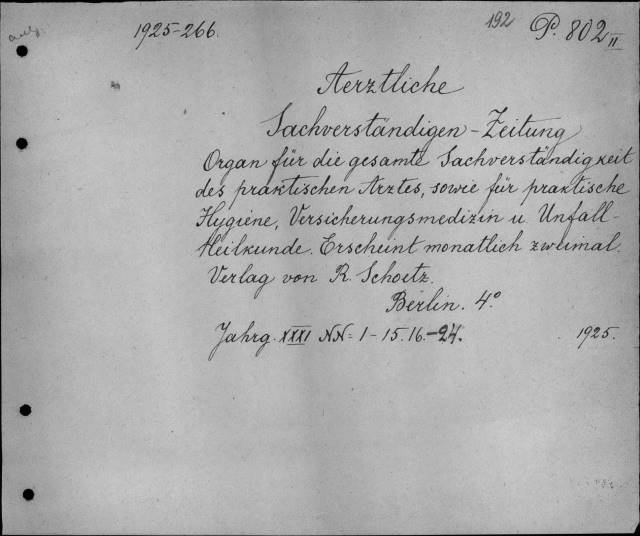 1925-266.
192 P. 802 II
Aerztliche
Sachverständigen-Zeitung
Organ für die gesamte Sachverständigkeit
des praktischen Arztes, sowie für praktische
Hygiene, Versicherungsmedizin u. Unfall-
Heilkunde. Erscheint monatlich zweimal.
Verlag von R. Schoetz.
Berlin. 4°
Jahrg. XXXI NN= 1-15.16.-24. 1925.